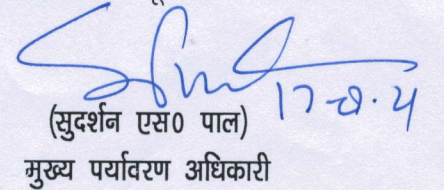 (सुदर्शन एस० पाल)
मुख्य पर्यावरण अधिकारी